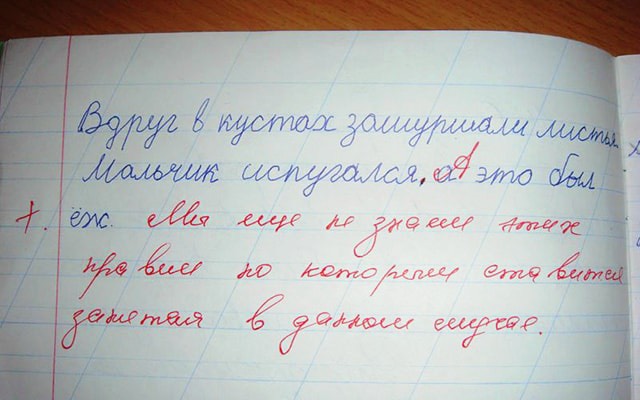 Вдруг в кустах зашуршали листья.
Мальчик испугался. А это был
ёж. Мы еще не знаем таких
правил по которым ставится
запятая в данном случае.